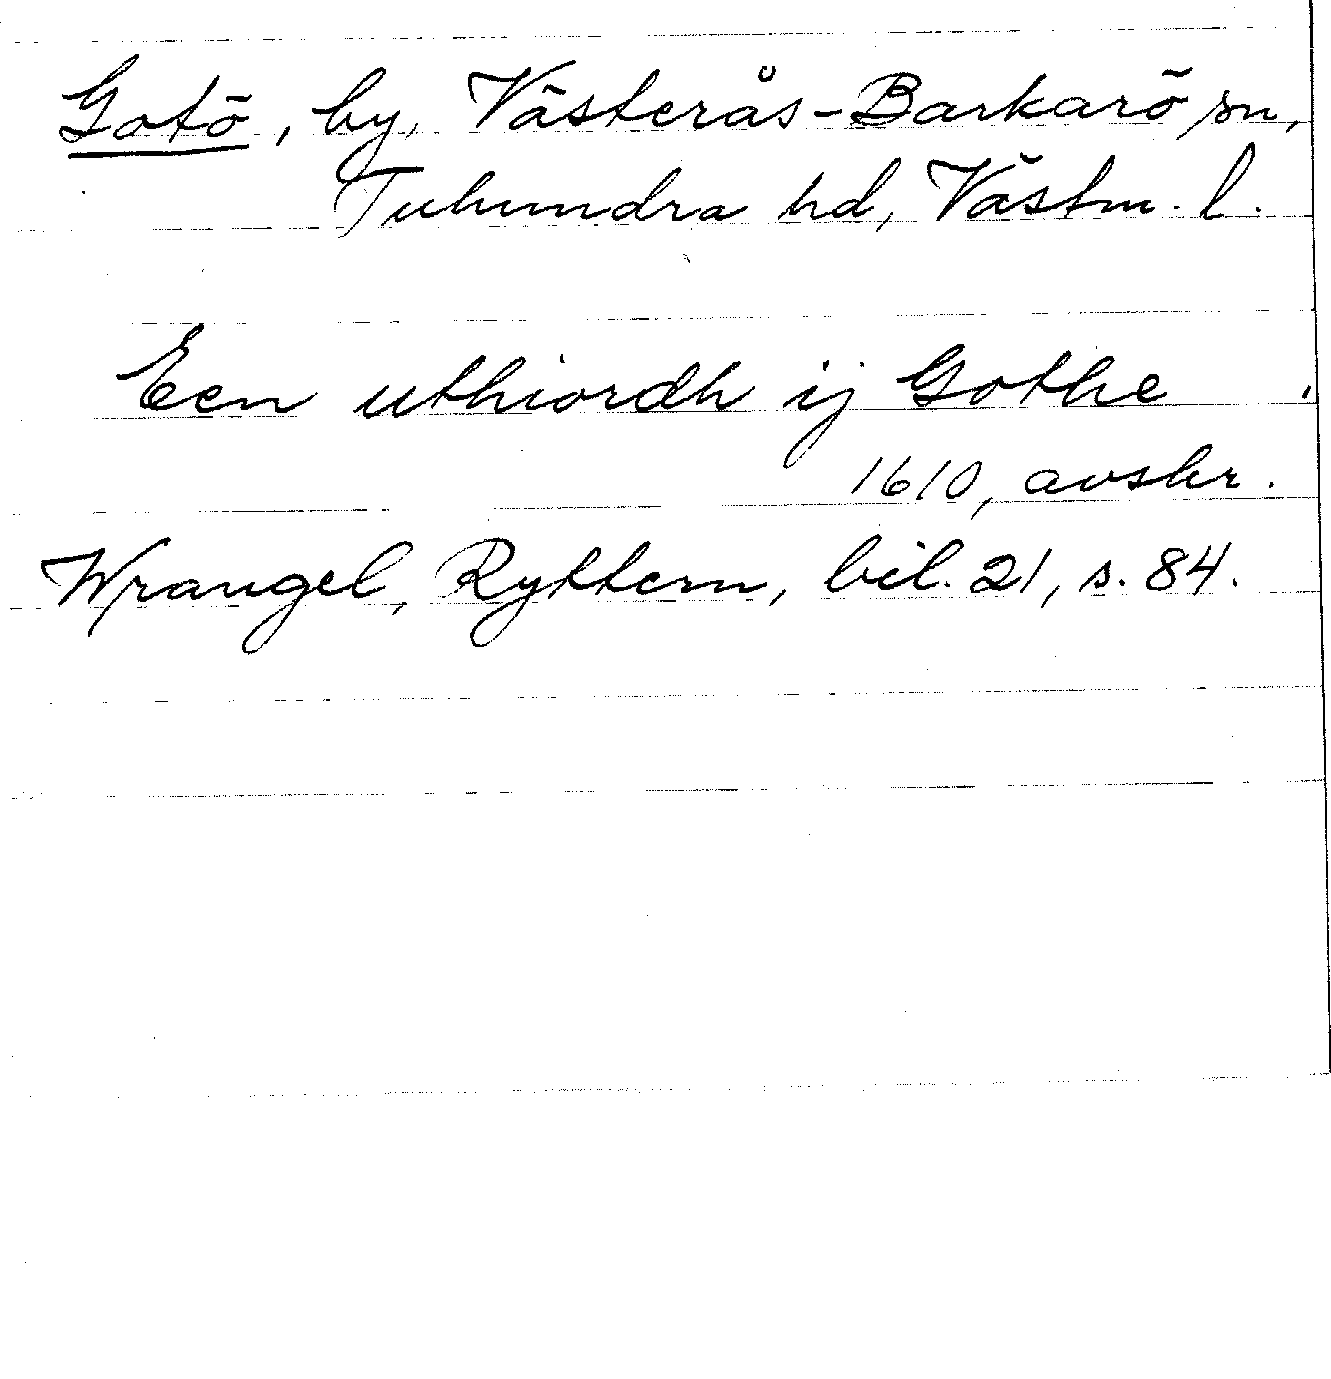 Gotö, by, Västerås-Barkarö sn,
Tuhundra hd, Västm. l.
Een uthiordh ij Gothe
1610, avskr.
Wrangel, Ryttern, bil. 21, s. 84.